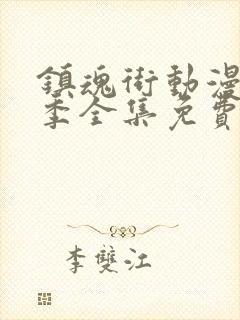 鎮魂街動漫
季全集免費
李雙江